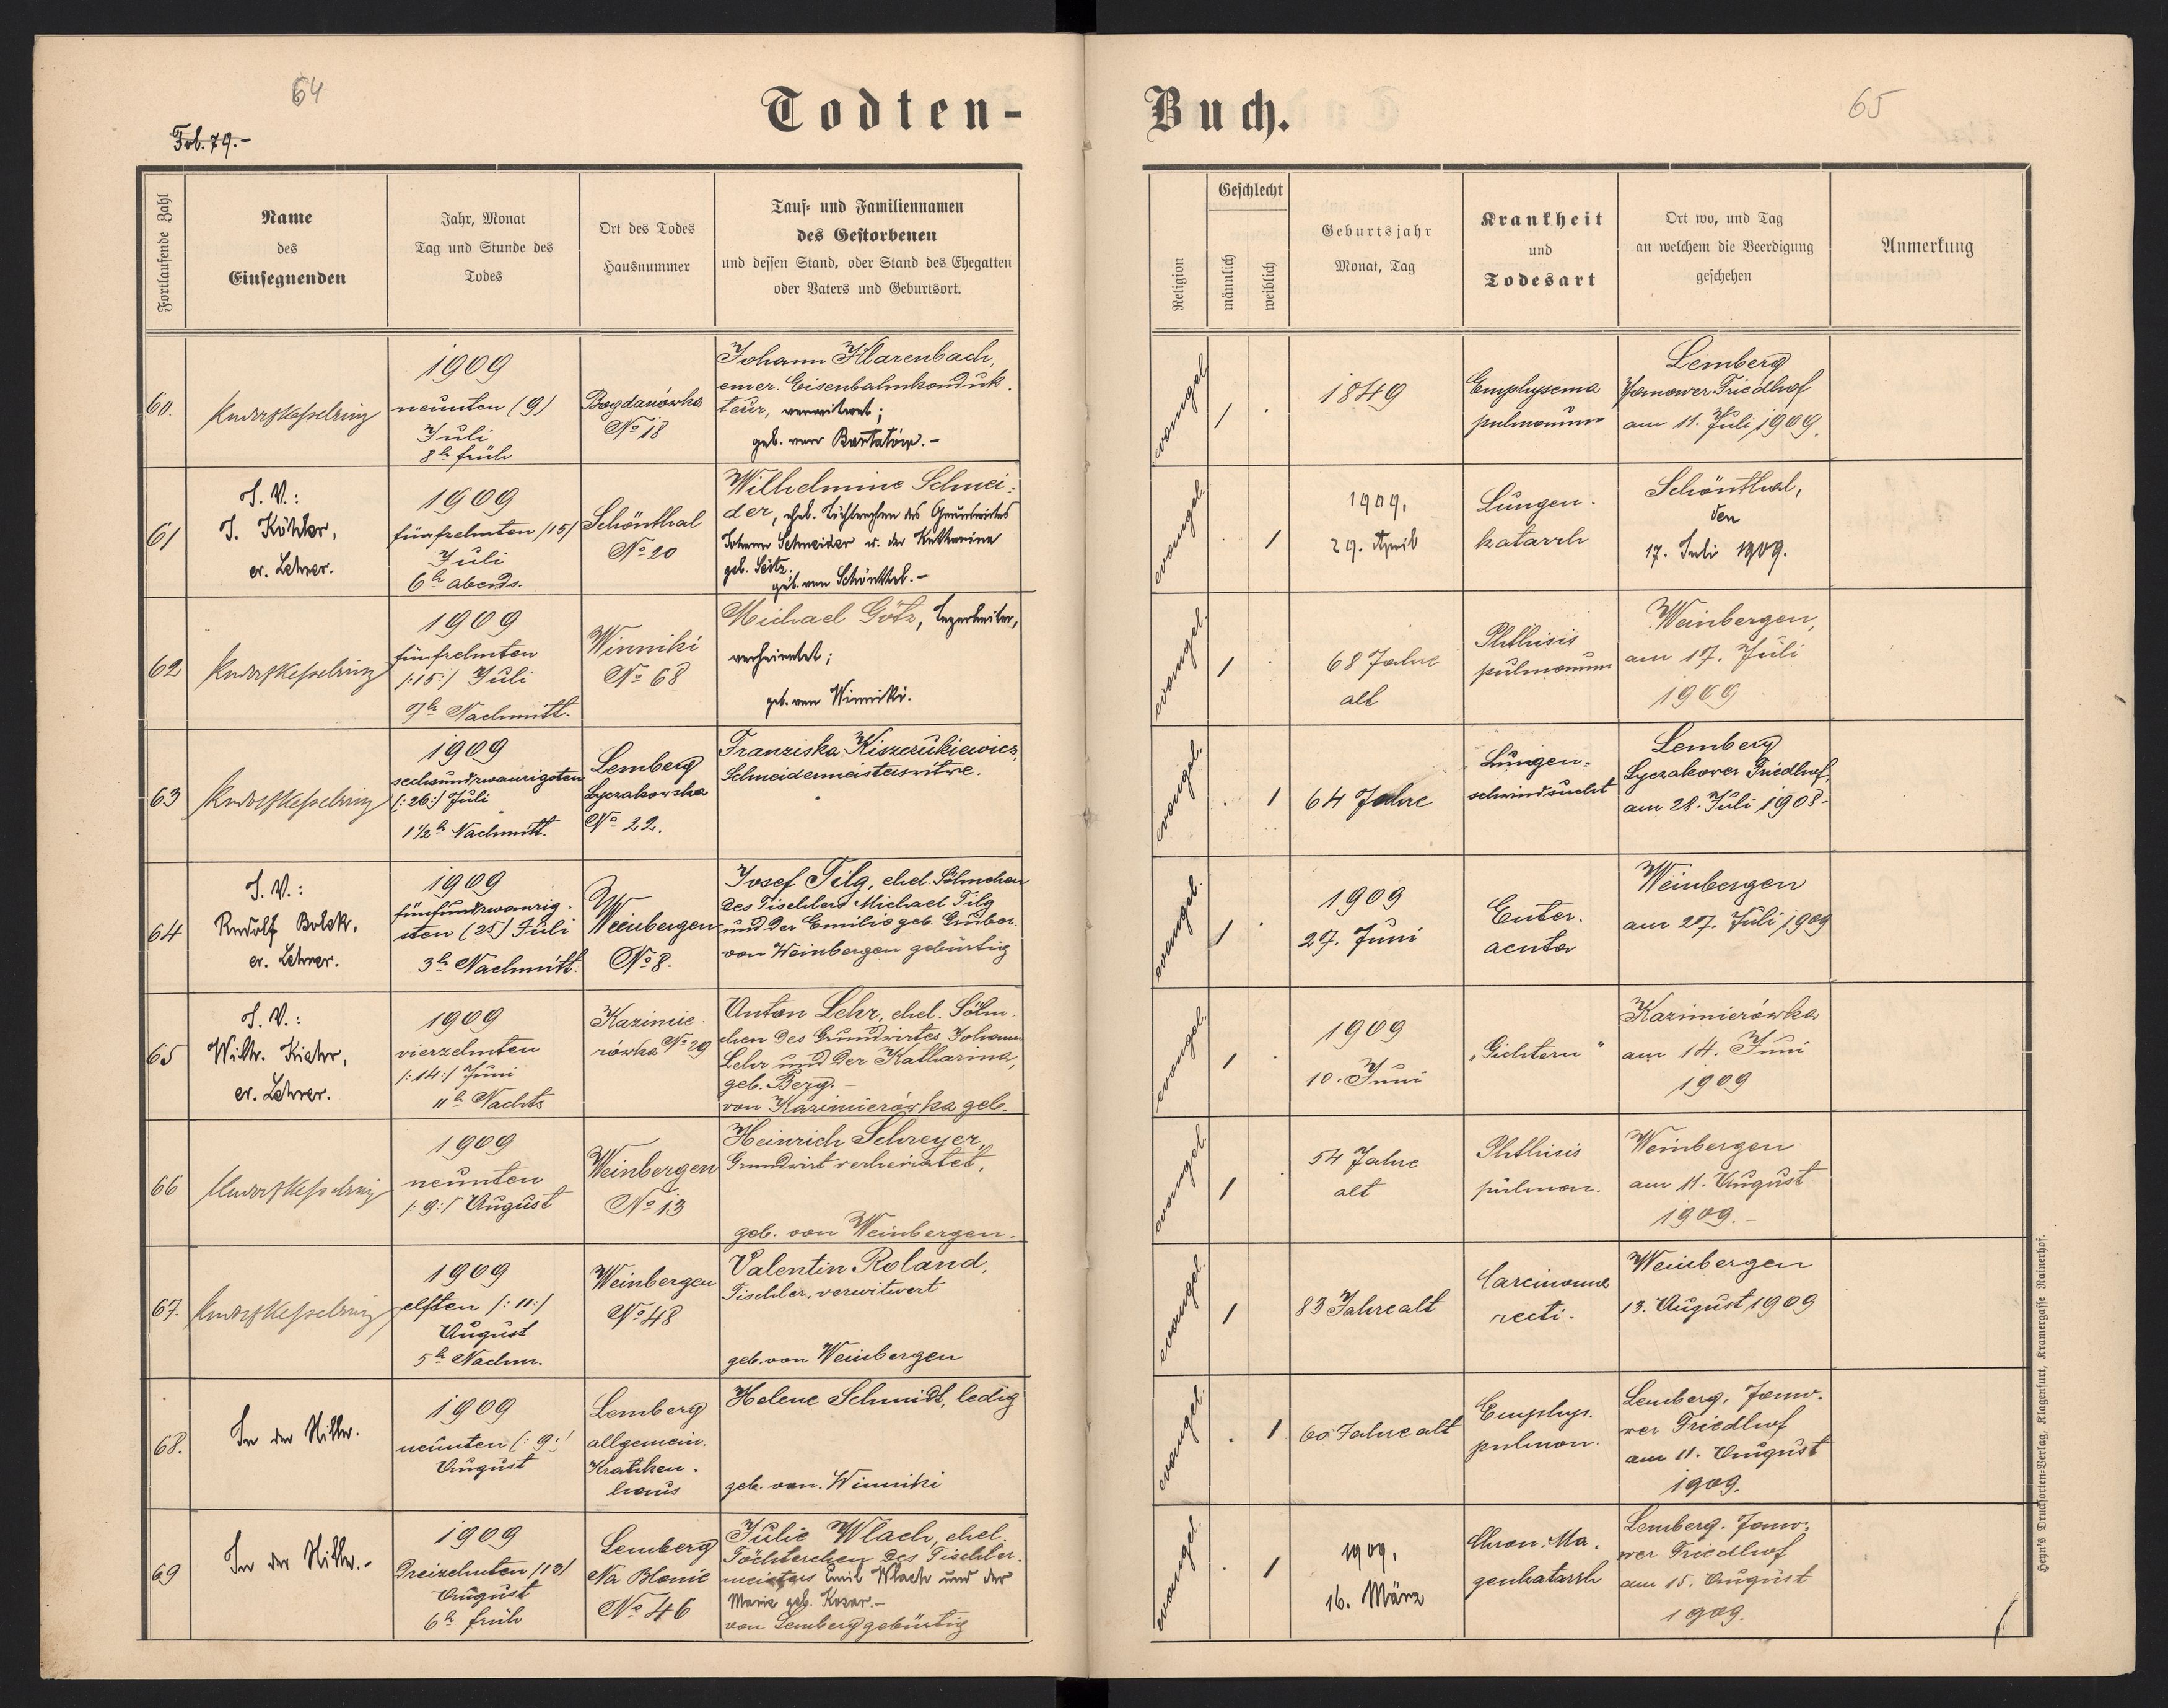 64
Todten-
Buch.
65
Fortlaufende Zahl
Name
des
Einsegnenden
Jahr, Monat
Tag und Stunde des
Todes
Ort des Todes
Hausnummer
Tauf- und Familiennamen
des Gestorbenen
und dessen Stand, oder Stand des Ehegatten
oder Vaters und Geburtsort.
Religion
Geschlecht
männlich
weiblich
Geburtsjahr
Monat, Tag
Krankheit
und
Todesart
Ort wo, und Tag
an welchem die Beerdigung
geschehen
Anmerkung
60.
Rudolf Kesselring
1909
neunten (9)
Juli
8h früh
Bogdanówka
No 18
Johann Klarenbach,
emer. Eisenbahnkonduk-
teur, verwitwet;
geb. von Bartatów.-
evangel.
1 .
1849
Emphysema
pulmonum
Lemberg
Janower Friedhof
am 11. Juli 1909.
61
I. V.:
J. Köhler,
ev. Lehrer.
1909
fünfzehnten /15/
Juli
6h abends.
Schönthal
No 20
Wilhelmine Schnei-
der, ehel. Töchterchen des Grundwirtes
Johann Schneider u. der Katharina
geb. Seitz.
geb. von Schönthal.-
evangel.
. 1
1909,
29. April
Lungen-
katarrh
Schönthal,
den
17. Juli 1909.
62
Rudolf Kesselring
1909
fünfzehnten
/:15:/ Juli
7h Nachmitt.
Winniki
No 68
Michael Götz,
verheiratet;
geb. von Winniki.
evangel.
1 .
68 Jahre
alt
Phthisis
pulmonum
Weinbergen,
am 17. Juli
1909
63
Rudolf Kesselring
1909
sechsundzwanzigsten
/:26:/ Juli
1 1/2h Nachmitt.
Lemberg
Lyczakowska
No 22.
Franziska Kiszczukiewicz,
Schneidermeisterswitwe.
evangel.
. 1
64 Jahre
Lungen-
schwindsucht
Lemberg
Lyczakower Friedhof,
am 28. Juli 1908-
64
I. V.:
Rudolf Bolek,
ev. Lehrer.
1909
fünfundzwanzig-
sten (25) Juli
3h Nachmitt.
Weinbergen
No 8.
Josef Tilg, ehel. Söhnchen
des Tischlers Michael Tilg
und der Emilie geb. Gruber.
von Weinbergen gebürtig
evangel.
1 .
1909
27. Juni
Enter.
acuta
Weinbergen
am 27. Juli 1909
65
I. V.:
Wilh. Kiehr,
ev. Lehrer.
1909
vierzehnten
/:14:/ Juni
11h Nachts
Kazimie-
rówka No 29
Anton Lehr, ehel. Söhn-
chen des Grundwirtes Johann
Lehr und der Katharina,
geb. Berg.-
von Kazimierówka geb.
evangel.
1 .
1909
10. Juni
„Gichtern“
Kazimierówka
am 14. Juni
1909
66
Rudolf Kesselring
1909
neunten
/:9:/ August
Weinbergen
No 13
Heinrich Schreyer,
Grundwirt verheiratet,
geb. von Weinbergen.
evangel.
1 .
54 Jahre
alt
Phthisis
pulmon.
Weinbergen
am 11. August
1909.-
67.
Rudolf Kesselring
1909
elften /:11:/
August
5h Nachm.
Weinbergen
No 48
Valentin Roland,
Tischler, verwitwert
geb. von Weinbergen
evangel.
1
83 Jahre alt
Carcinoma
recti.
Weinbergen
13. August 1909
68.
1909
neunten (:9:/
August
Lemberg
allgemein.
Kranken-
haus
Helene Schmidt, ledig
geb. von Winniki
evangel.
. 1
60 Jahre alt
Emphys.
pulmon.
Lemberg, Jano-
wer Friedhof
am 11. August
1909.
69
1909
dreizehnten /13/
August
6h früh
Lemberg
Na Blonie
No 46
Julie Wlach, ehel.
Töchterchen des Tischler-
meisters Emil Wlach und der
Marie geb. Kozar.-
von Lemberg gebürtig
evangel.
. 1
1909,
16. März
Chron. Ma-
genkatarrh
Lemberg. Jano-
wer Friedhof
am 15. August
1909.
Heyn's Drucksorten-Verlag, Klagenfurt, Kramergasse Rainerhof.